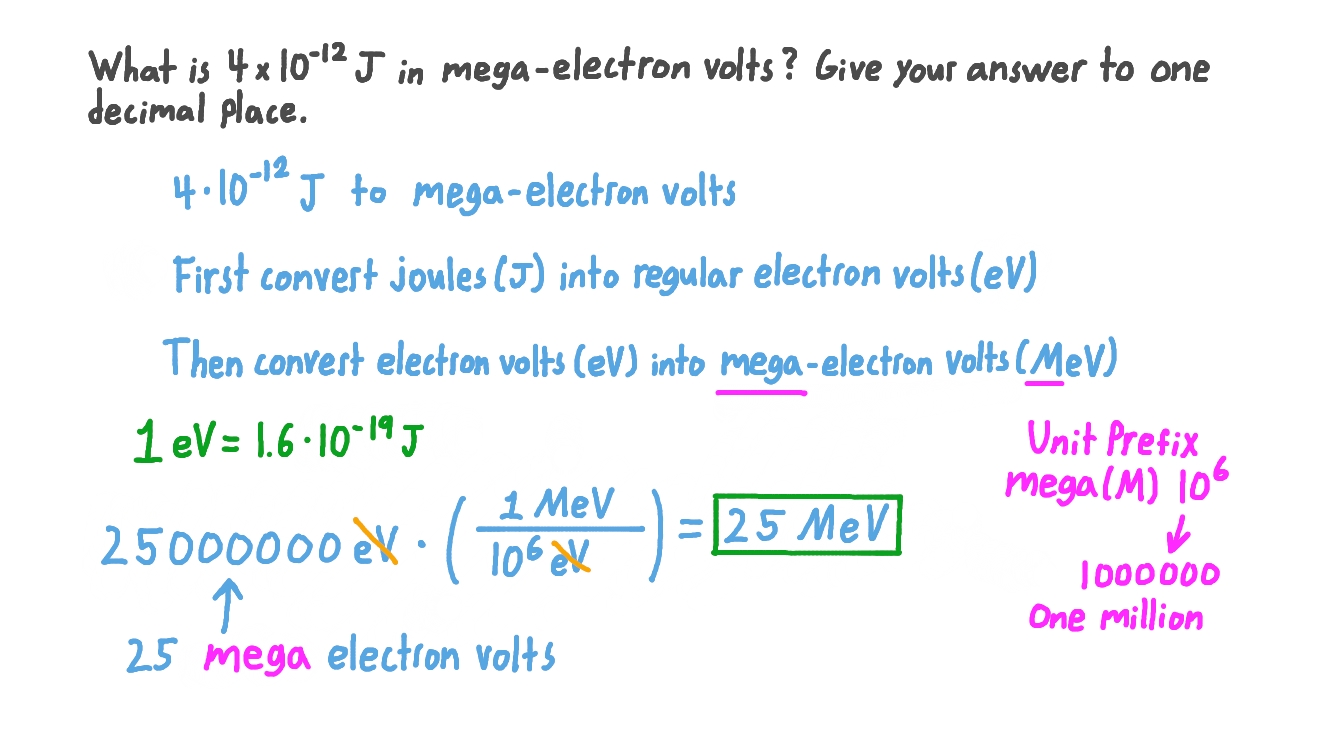 What is 4x10⁻¹² J in mega-electron volts? Give your answer to one
decimal place.
4·10⁻¹² J to mega-electron volts
First convert joules (J) into regular electron volts (eV)
Then convert electron volts (eV) into mega-electron volts (MeV)
1 eV = 1.6·10⁻¹⁹ J
Unit Prefix
mega (M) 10⁶
1000000
One million
25000000 eV · (1 MeV / 10⁶ eV) = 25 MeV
25 mega electron volts